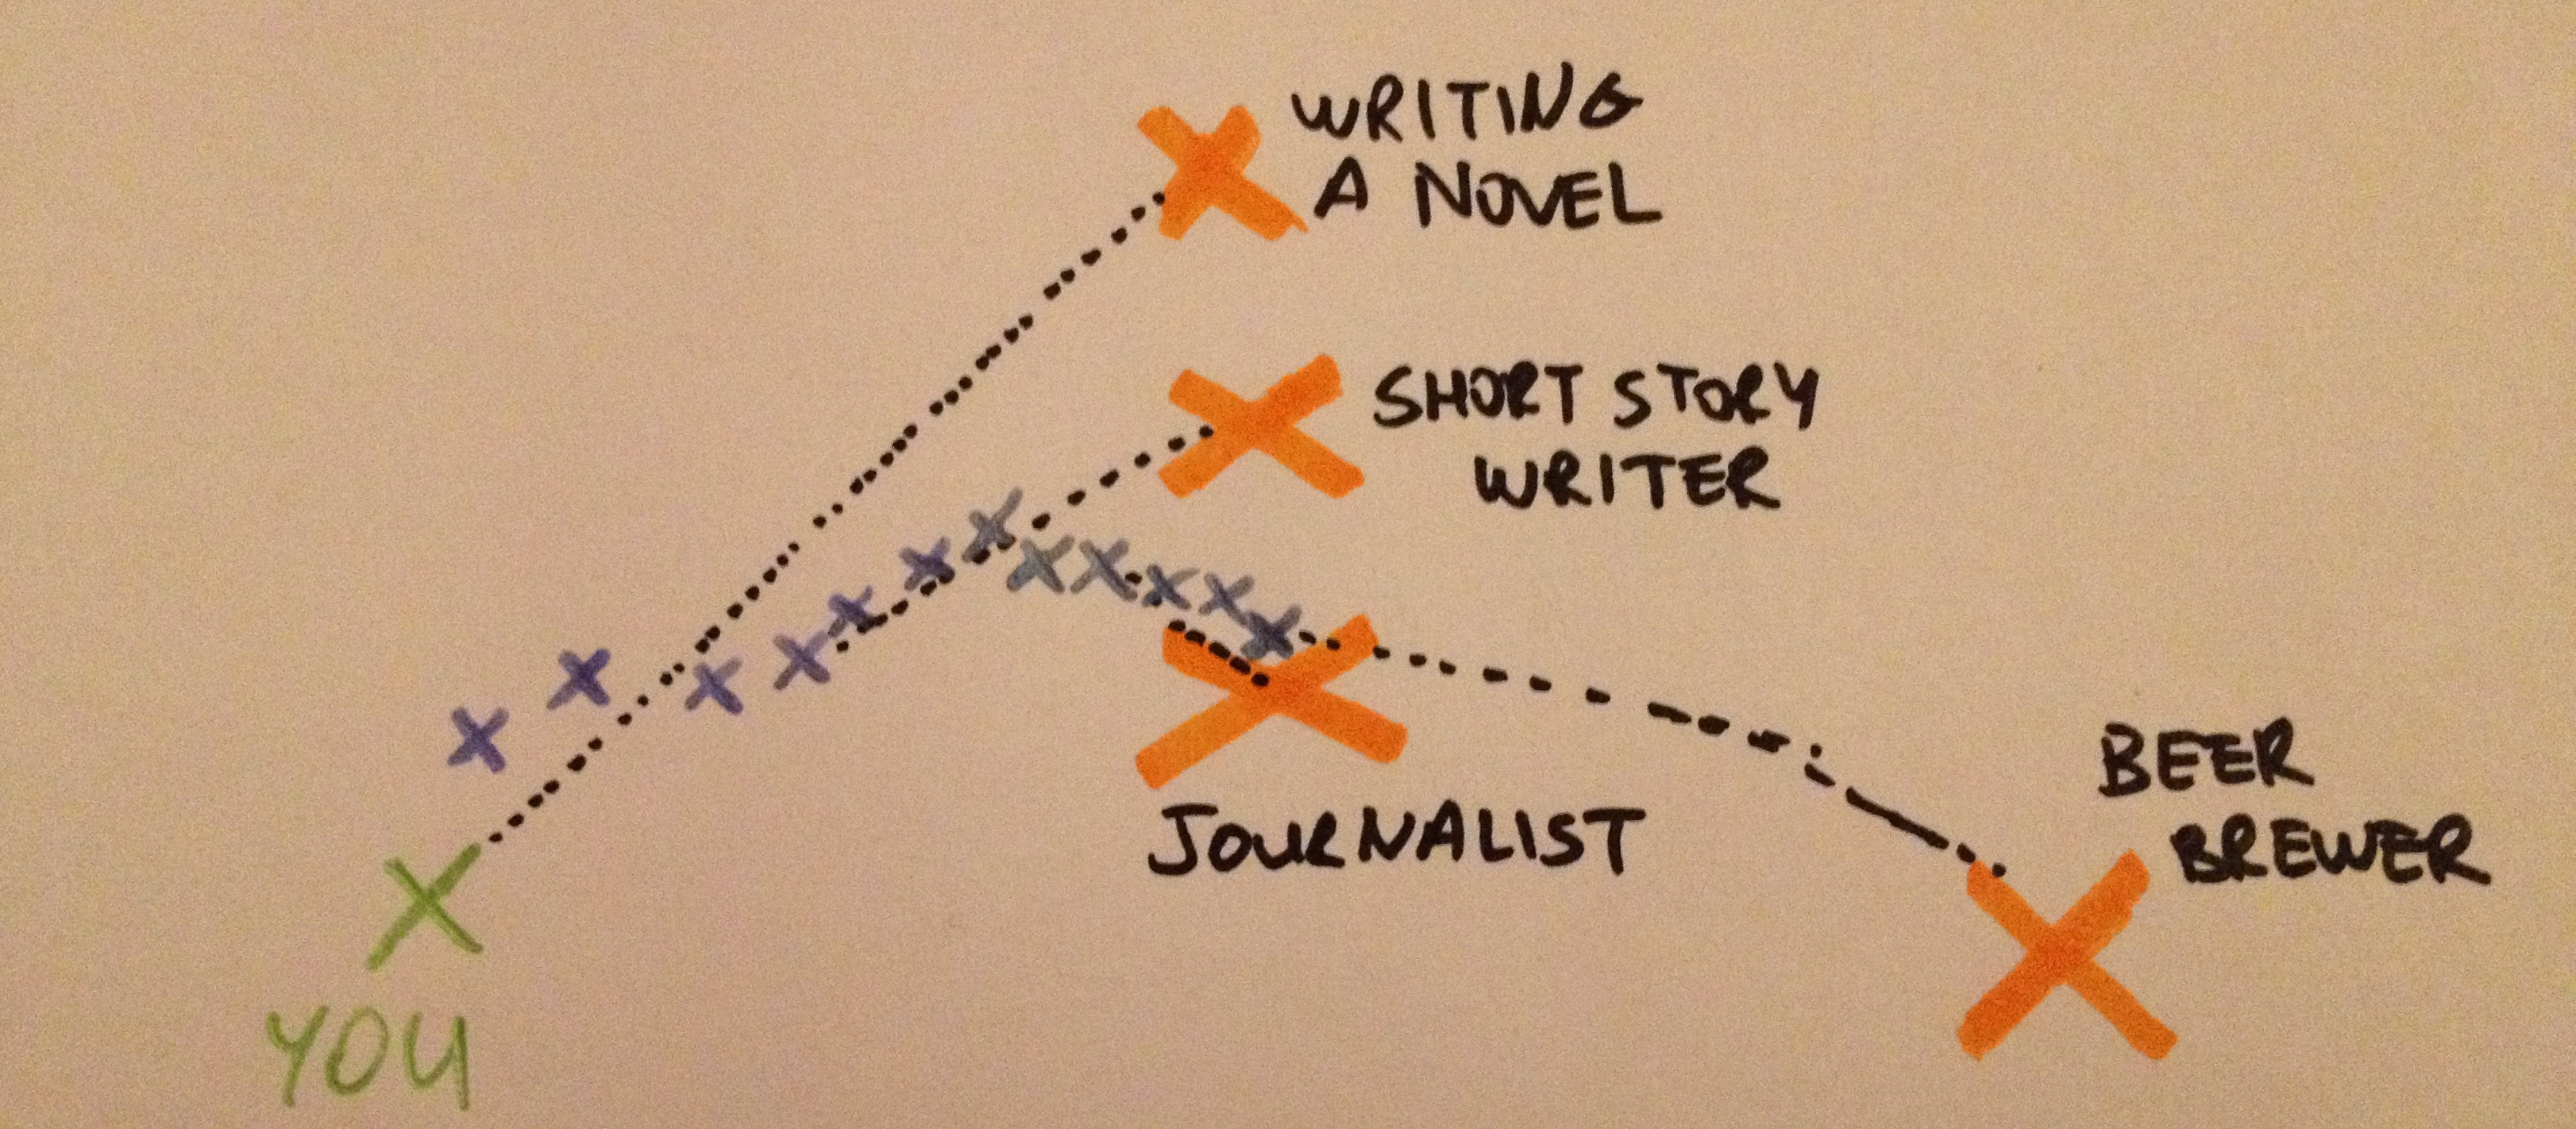 WRITING
A NOVEL
SHORT STORY
WRITER
JOURNALIST
BEER
BREWER
YOU